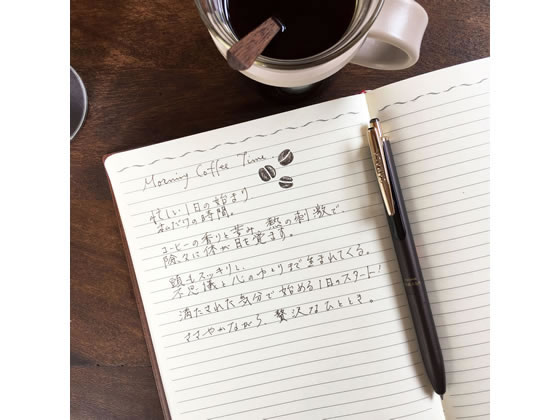 Morning Coffee Time.
忙しい1日の始まり
わたしの時間。
コーヒーの香りと苦み、熱の刺激で、
除々に体が目を覚ます。
頭もスッキリと、
不思議と心のゆとりまで生まれてくる。
満たされた気分で始める1日のスタート!
ささやかながら、贅沢なひととき。